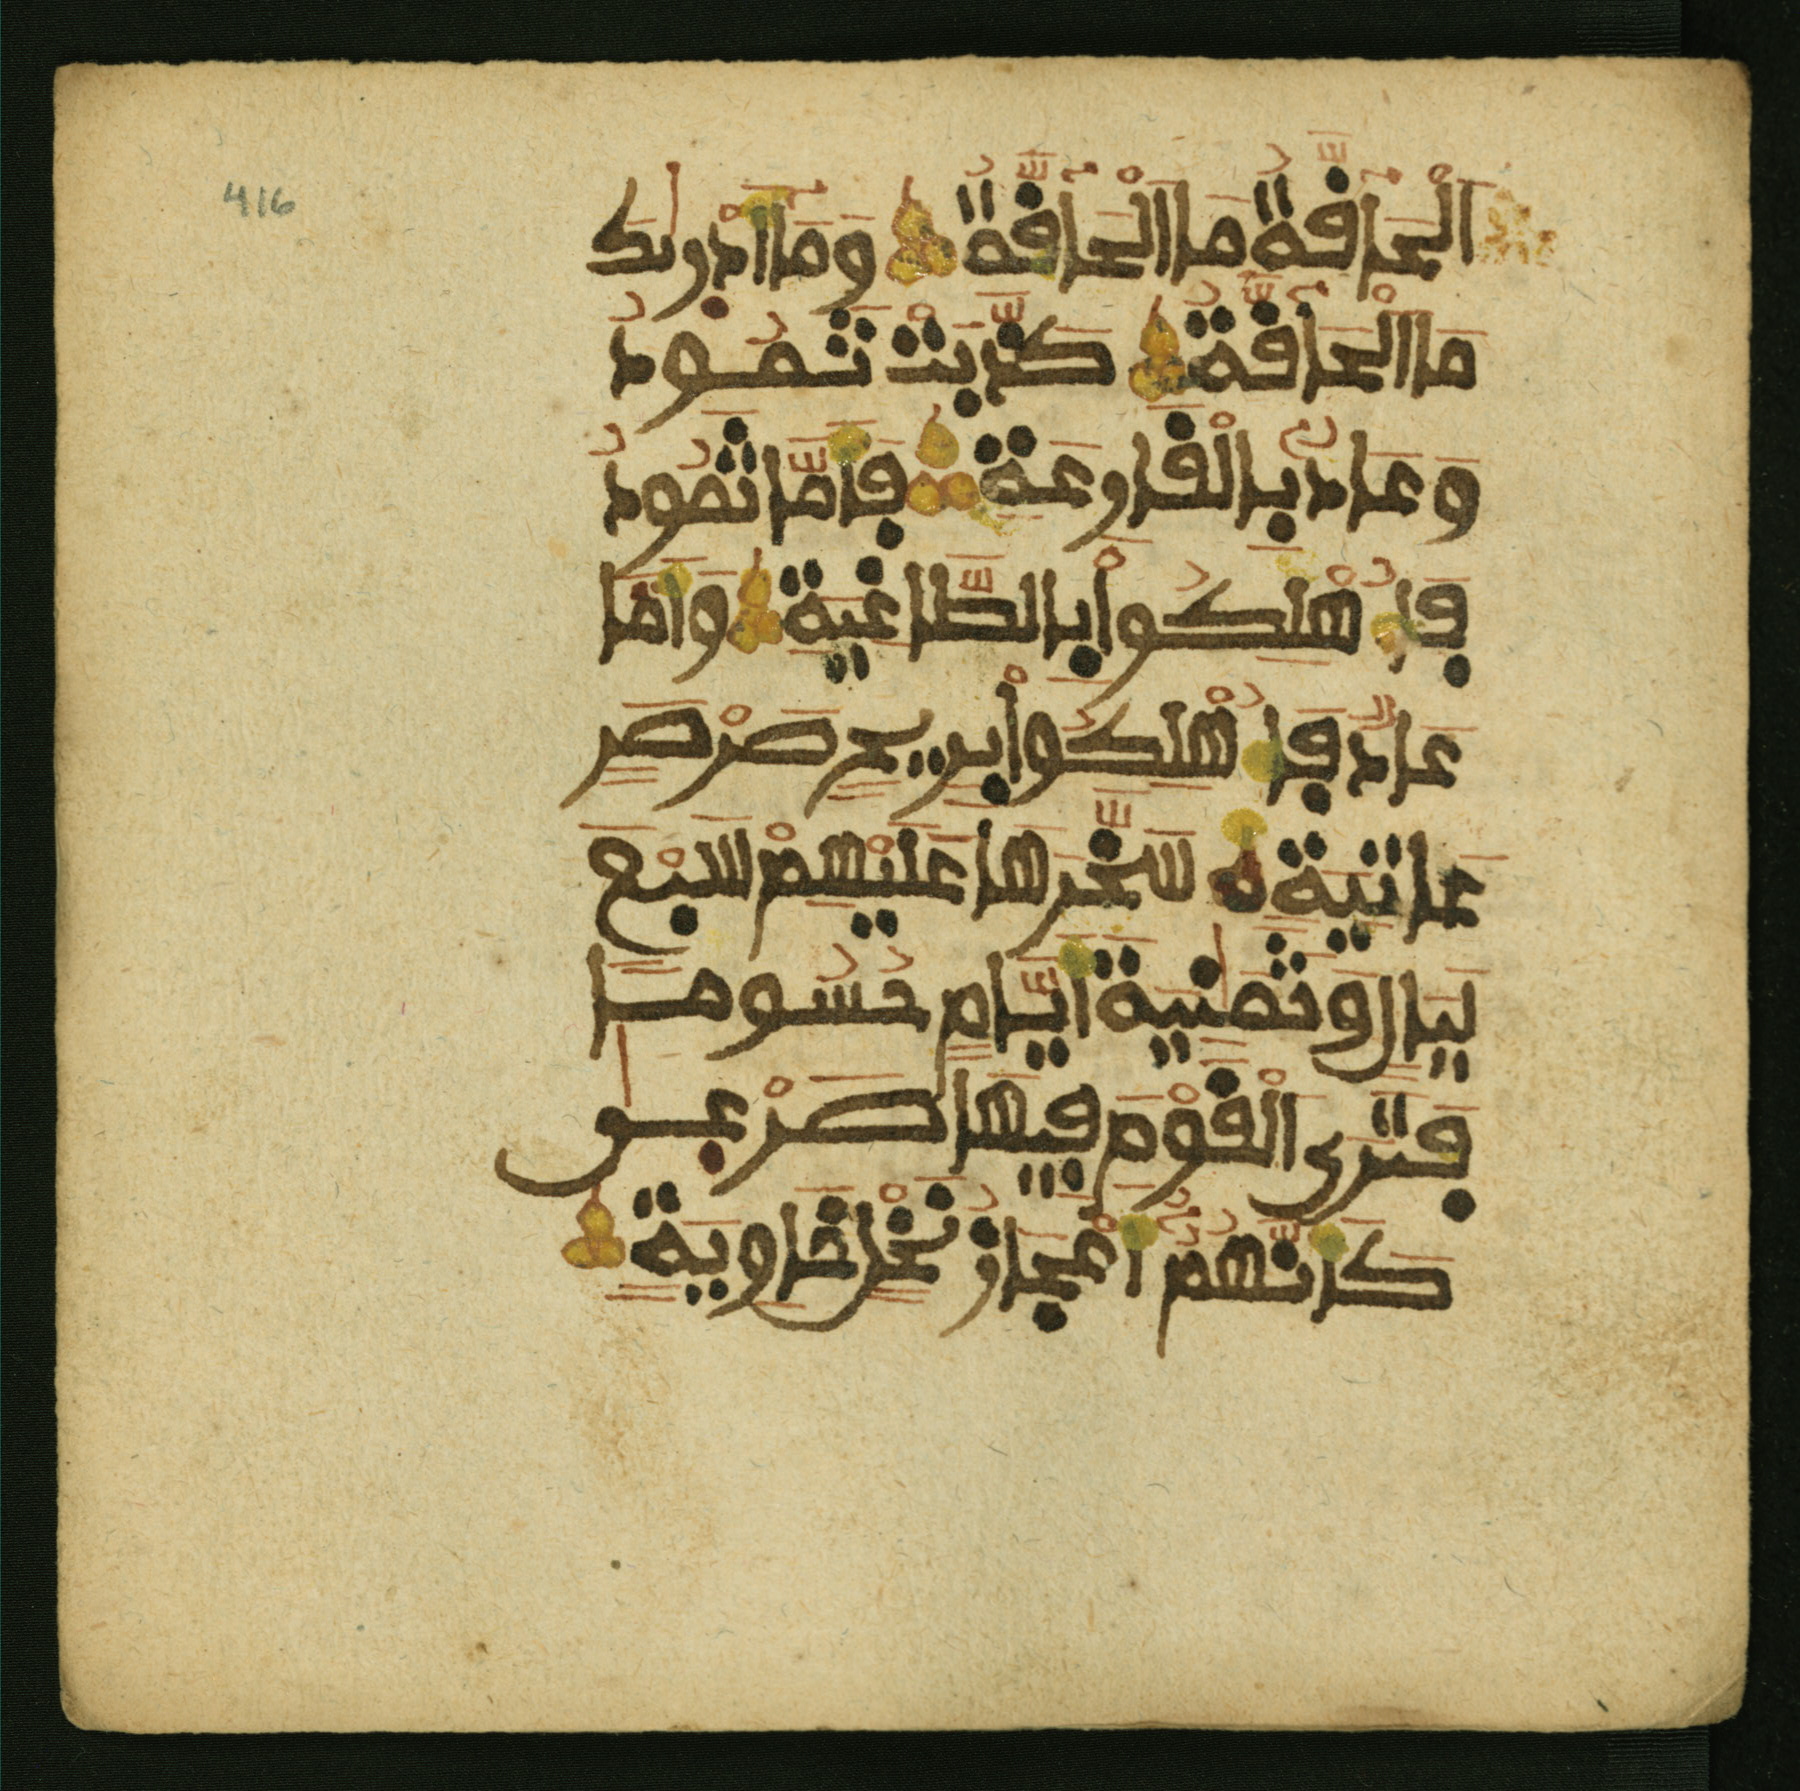 416
اَلْحَآفَّةُ مَا اَلْحَآفَّةُ وَمَا أَدْرٮٰكَ
مَا اَلْحَآفَّةُ كَذَّبَتْ ثَمُودُ
وَعَادٌ بِالْفَارِعَةِ ڢَأَمَّا ثَمُودُ
ڢَأُهْلِكُواْ بِالطَّاغِيَةِ وَأَمَّا
عَادٌ ڢَأُهْلِكُواْ بِرِيحٍ صَرْصَرٍ
عَاتِيَةٍ سَخَّرَهَا عَلَيْهِمْ سَبْعَ
لَيَالٍ وَثَمَٰنِيَةِ أَيَّامٍ حُسُوماً
ڢَتَرَى اَلْفَوْمَ ڢِيهَا صَرْعٜىٰ
كَأَنَّهُمُۥٓ أَعْجَازُ نَخْلٍ خَاوِيَةٍ